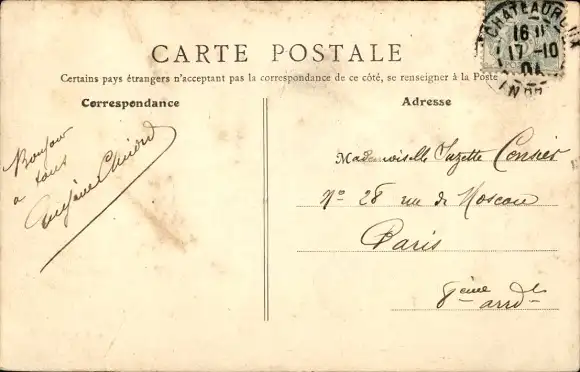 CHATEAUROUX
16
17 -10
04
INDRE
CARTE POSTALE
Certains pays étrangers n'acceptant pas la correspondance de ce côté, se renseigner à la Poste
Correspondance
Adresse
Bonjour
a tous
Mademoiselle Suzette
No 28 rue de Moscou
Paris
8ème arrdt